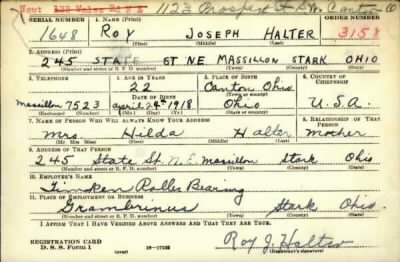 Now: 128 Wales Rd N E 1123 Prospect St S.W. Canton O
SERIAL NUMBER 1. NAME (Print) ORDER NUMBER
1648 ROY JOSEPH HALTER 3158
(First) (Middle) (Last)
2. ADDRESS (Print)
245 STATE ST NE MASSILLON STARK OHIO
(Number and street or R. F. D. number) (Town) (County) (State)
3. TELEPHONE 4. AGE IN YEARS 5. PLACE OF BIRTH 6. COUNTRY OF CITIZENSHIP
22 Canton Ohio
DATE OF BIRTH (Town or county)
Massillon 7523 April 24th 1918 Ohio U.S.A.
(Exchange) (No.) (Mo.) (Day) (Yr.) (State or country)
7. NAME OF PERSON WHO WILL ALWAYS KNOW YOUR ADDRESS 8. RELATIONSHIP OF THAT PERSON
Mrs. Hilda Halter Mother
(Mr., Mrs., Miss) (First) (Middle) (Last)
9. ADDRESS OF THAT PERSON
245 State St. N.E. Massillon Stark Ohio
(Number and street or R. F. D. number) (Town) (County) (State)
10. EMPLOYER'S NAME
Timken Roller Bearing
11. PLACE OF EMPLOYMENT OR BUSINESS
Grambrinus Stark Ohio
(Number and street or R. F. D. number) (Town) (County) (State)
I AFFIRM THAT I HAVE VERIFIED ABOVE ANSWERS AND THAT THEY ARE TRUE.
REGISTRATION CARD
D. S. S. Form 1 (over) 16—17105 Roy J. Halter
(Registrant's signature)